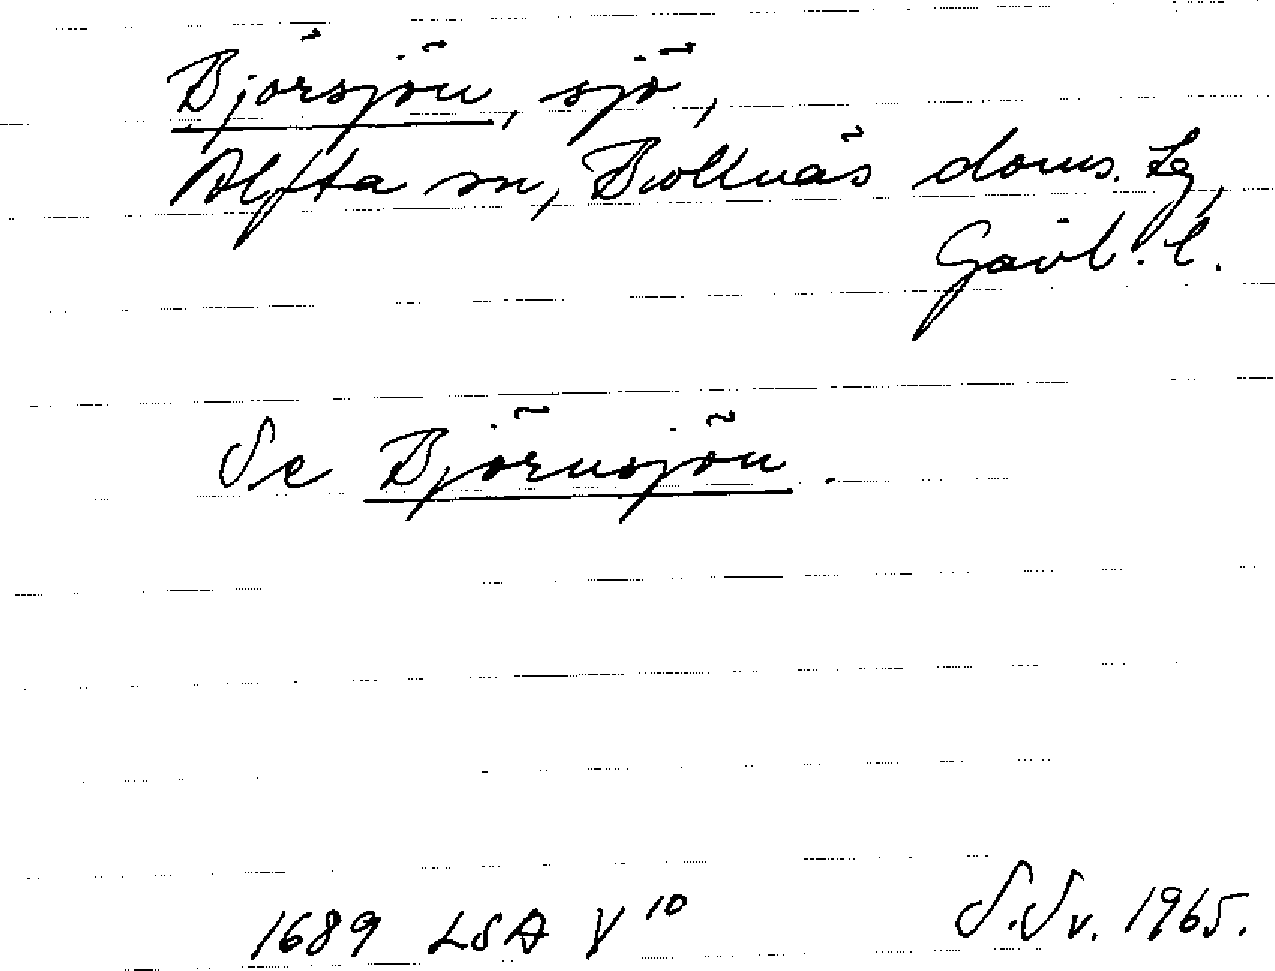 Björsjön, sjö,
Alfta sn, Bollnäs doms. Lg,
Gävl. l.
Se Björnsjön.
1689 LSA V¹⁰
S.Sv. 1965.